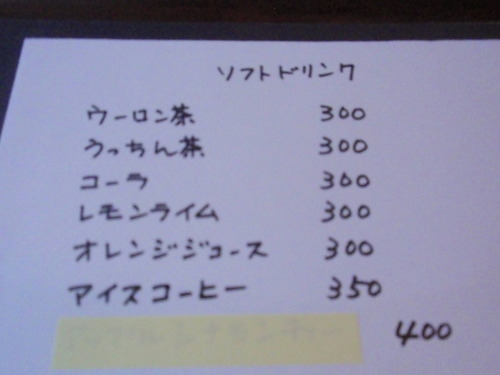 ソフトドリンク
ウーロン茶 300
うっちん茶 300
コーラ 300
レモンライム 300
オレンジジュース 300
アイスコーヒー 350
400